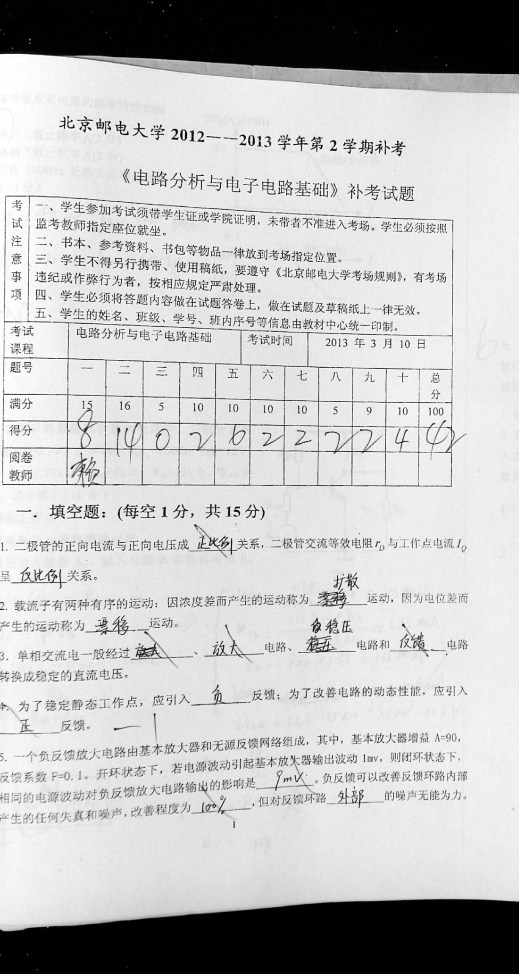 北京邮电大学 2012——2013 学年第 2 学期补考
《电路分析与电子电路基础》补考试题
考试注意事项
一、学生参加考试须带学生证或学院证明，未带者不准进入考场。学生必须按照
监考教师指定座位就坐。
二、书本、参考资料、书包等物品一律放到考场指定位置。
三、学生不得另行携带、使用稿纸，要遵守《北京邮电大学考场规则》，有考场
违纪或作弊行为者，按相应规定严肃处理。
四、学生必须将答题内容做在试题答卷上，做在试题及草稿纸上一律无效。
五、学生的姓名、班级、学号、班内序号等信息由教材中心统一印制。
考试课程 电路分析与电子电路基础 考试时间 2013 年 3 月 10 日
题号 一 二 三 四 五 六 七 八 九 十 总分
满分 15 16 5 10 10 10 10 5 9 10 100
得分 8 14 0 2 6 2 2 2 2 4 42
阅卷教师
一．填空题：(每空 1 分，共 15 分)
1. 二极管的正向电流与正向电压成 正比例 关系，二极管交流等效电阻 rD 与工作点电流 IQ
呈 反比例 关系。
扩散
2. 载流子有两种有序的运动：因浓度差而产生的运动称为 漂移 运动，因为电位差而
产生的运动称为 漂移 运动。
稳压
3. 单相交流电一般经过 放大 、 放大 电路、 稳压 电路和 反馈 电路
转换成稳定的直流电压。
4. 为了稳定静态工作点，应引入 负 反馈；为了改善电路的动态性能，应引入
正 反馈。
5. 一个负反馈放大电路由基本放大器和无源反馈网络组成，其中，基本放大器增益 A=90，
反馈系数 F=0.1。开环状态下，若电源波动引起基本放大器输出波动 1mv，则闭环状态下，
相同的电源波动对负反馈放大电路输出的影响是 9mV 。负反馈可以改善反馈环路内部
产生的任何失真和噪声，改善程度为 100% ，但对反馈环路 外部 的噪声无能为力。
1